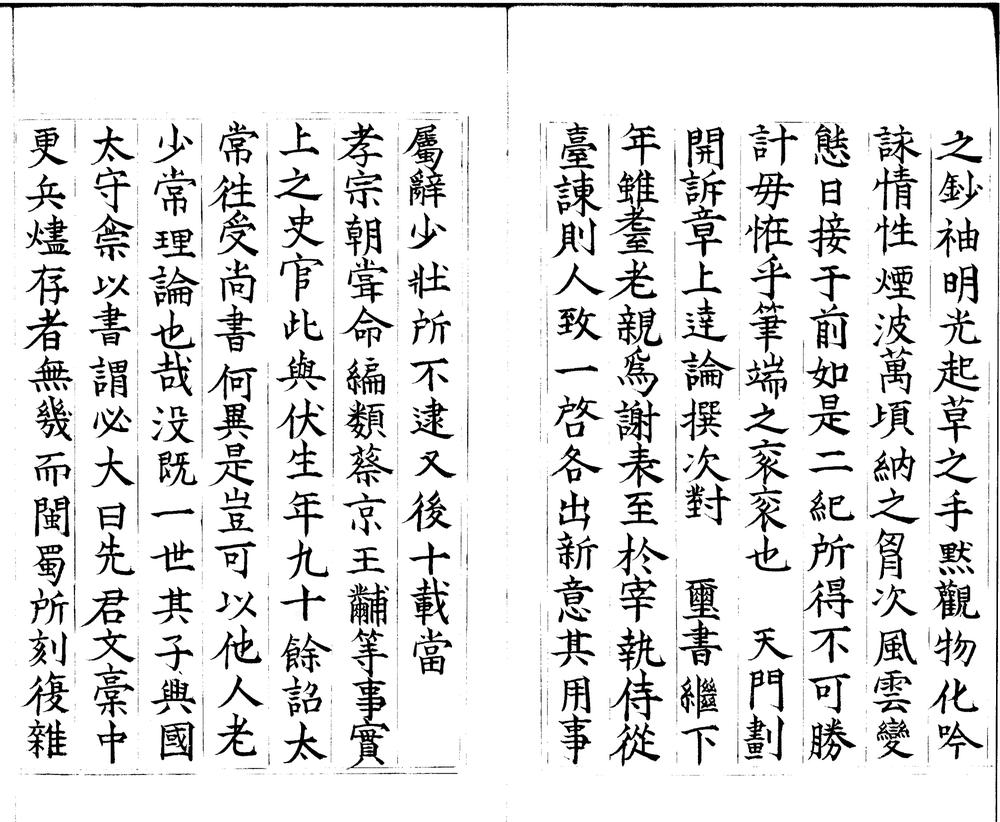 之鈔袖明光起草之手默觀物化吟
詠情性煙波萬頃納之胷次風雲變
態日接于前如是二紀所得不可勝
計毋恠乎筆端之衮衮也　天門劃
開訴章上達論撰次對　璽書繼下
年雖耋老親爲謝表至於宰執侍從
臺諫則人致一啓各出新意其用事
屬辭少壯所不逮又後十載當
孝宗朝嘗命編類蔡京王黼等事實
上之史官此與伏生年九十餘詔太
常徃受尚書何異是豈可以他人老
少常理論也哉没既一世其子興國
太守僉以書謂必大曰先君文稾中
更兵燼存者無幾而閩蜀所刻復雜